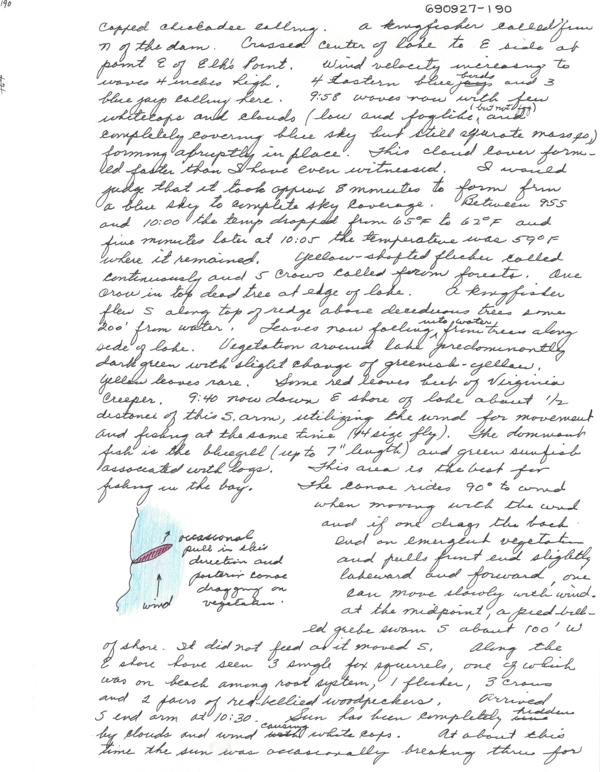 190
690927-190
capped chickadee calling. A kingfisher called from
N of the dam. Crossed center of lake to E side at
point E of Elk's Point. Wind velocity increasing to
waves 4 inches high. 4 Eastern bluebirds and 3
blue jays calling here. 9:58 waves now with few
whitecaps and clouds (low and foglike, (but not fog) and
completely covering blue sky but still separate masses)
forming abruptly in place. This cloud cover form-
ed faster than I have even witnessed. I would
judge that it took approx 8 minutes to form from
a blue sky to complete sky coverage. Between 955
and 10:00 the temp dropped from 65°F to 62°F and
five minutes later at 10:05 the temperature was 59°F
where it remained. Yellow-shafted flicker called
continuously and 5 crows called from forests. One
crow in top dead tree at edge of lake. A kingfisher
flew S along top of ridge above deciduous trees some
200' from water. Leaves now falling into water from trees along
side of lake. Vegetation around lake predominantly
dark green with slight change of greenish-yellow.
Yellow leaves rare. Some red leaves but of Virginia
Creeper. 9:40 now down E shore of lake about 1/2
distance of this S. arm, utilizing the wind for movement
and fishing at the same time (#4 size fly). The dominant
fish is the bluegill (up to 7" length) and green sunfish
associated with logs. This area is the best for
fishing in the bay. The canoe rides 90° to wind
when moving with the wind
and if one drags the back
end on emergent vegetation
and pulls front end slightly
lakeward and forward, one
can move slowly with wind.
at the midpoint, a pied-bill-
ed grebe swam S about 100' W
occasional
pull in this
direction and
posterior canoe
dragging on
vegetation.
wind
of shore. It did not feed as it moved S. Along the
E shore have seen 3 single fox squirrels, one of which
was on beach among root system, 1 flicker, 3 crows
and 2 pairs of red-bellied woodpeckers. Arrived
S end arm at 10:30. Sun has been completely hidden
by clouds and wind causing white caps. At about this
time the sun was occasionally breaking thru for